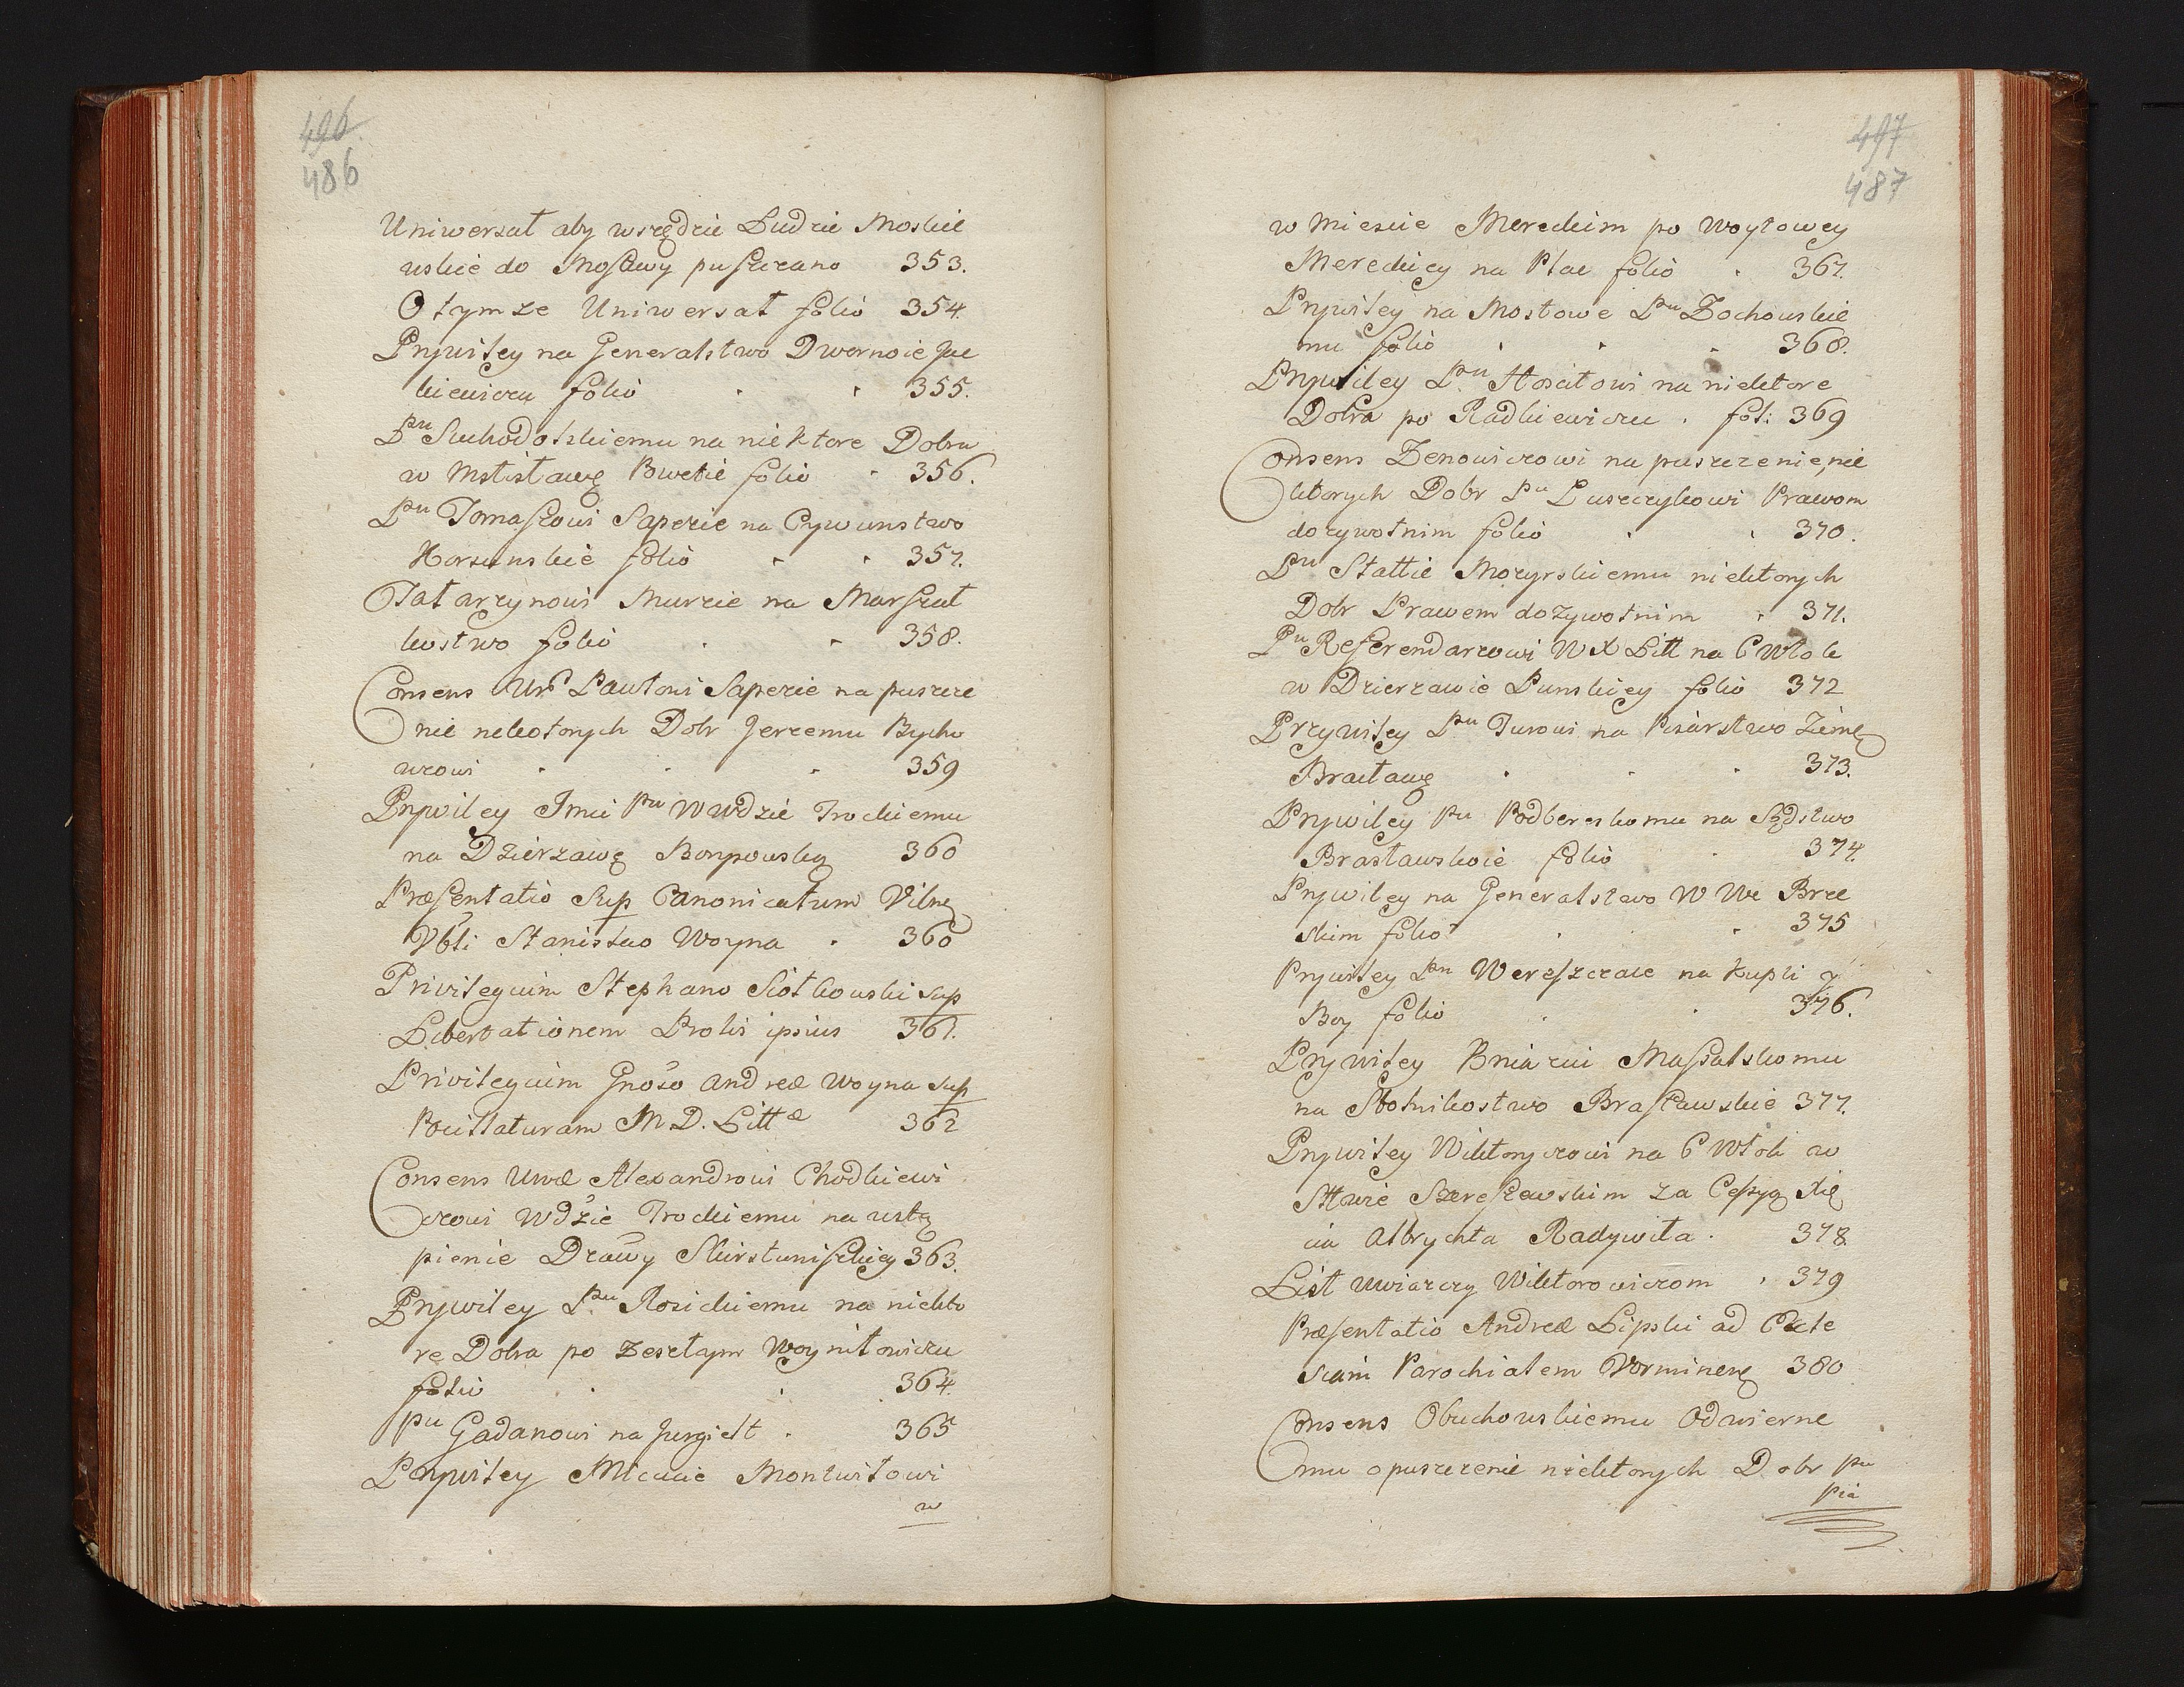 496.
486
Uniwersał aby wszędzie Ludzie Moskie
uskie do Mosławy puszczano 353.
O tymze Uniwersał folio 354.
Prywiley na Generalstwo Dwornoie Jac
kiewiczu folio 355.
Pnu Suchodolskiemu na niektore Dobra
w Mstisławę Pwecie folio 356.
Pnu Tomaszowi Sapezie na Cywunstwo
Korsunskie folio 357.
Tatarzynowi Murzie na Marszał
kostwo folio 358.
Consens Uro Pawłowi Sapezie na puszcze
nie nekotorych Dobr Jerzemu Bycho
wcowi 359
Prywiley Imci Pnu WWdzie Trockiemu
na Dzierzawę Borypowską 360
Præsentatio Sup Canonicatum Vilnę
Vbli Stanislao Woyna 360
Privilegium Stephano Siotkowski sup
Libertationem Prolis ipsius 361.
Privilegium Gnoso Andreæ Woyna sup
Pocillaturam M. D. Littæ 362
Consens Uwæ Alexandrowi Chodkiewi
czowi Wdzie Trockiemu na ustą
pienie Dzawy Skirstuniskiey 363.
Prywiley Pnu Rosickiemu na niekto
re Dobra po zeszłym Woyniłowiczu
folio 364.
Pnu Gadanowi na Jurgielt 365
Prywiley Mcawie Montwiłowi
w
497
487
w Miescie Mereckim po Woytowey
Mereckiey na Plac folio 367.
Prywiley na Mostowe Pnu Zochowskie
mu folio 368.
Prywiley Pnu Stosałowi na niektore
Dobra po Radkiewiczu fol: 369
Consens Zenowiczowi na puszczenie, nie
ktorych Dobr Pu Luszczykowi Prawom
dozywotnim folio 370.
Pnu Stattie Mozyrskiemu niektorych
Dobr Prawem dozywotnim 371.
Pu Referendarzowi WX Litt na 6 Włok
w Dzierzawie Punskiey folio 372
Przywiley Pnu Turowi na Pisarstwo Ziemę
Bracławę 373.
Prywiley Pu Podbereskomu na Sędstwo
Brasławskoie folio 374.
Prywiley na Generalstwo W We Brze
skim folio 375
Prywiley Pnu Wereszczace na Kupli y
Boy folio 376.
Prywiley Kniazui Massalskomu
na Stolnikostwo Brasławskie 377.
Prywiley Wiktoryczowi na 6 Włok w
Sttwie Szereszewskim za Cessyą Xię
cia Albrychta Radywiła 378.
List Uwiazczy Wiktorowiczom 379
Præsentatio Andreæ Lipski ad Eccle
siam Parochialem Vorminenę 380
Consens Obuchowskiemu Odwierne
mu opuszczenie niektorych Dobr Pu
Pia